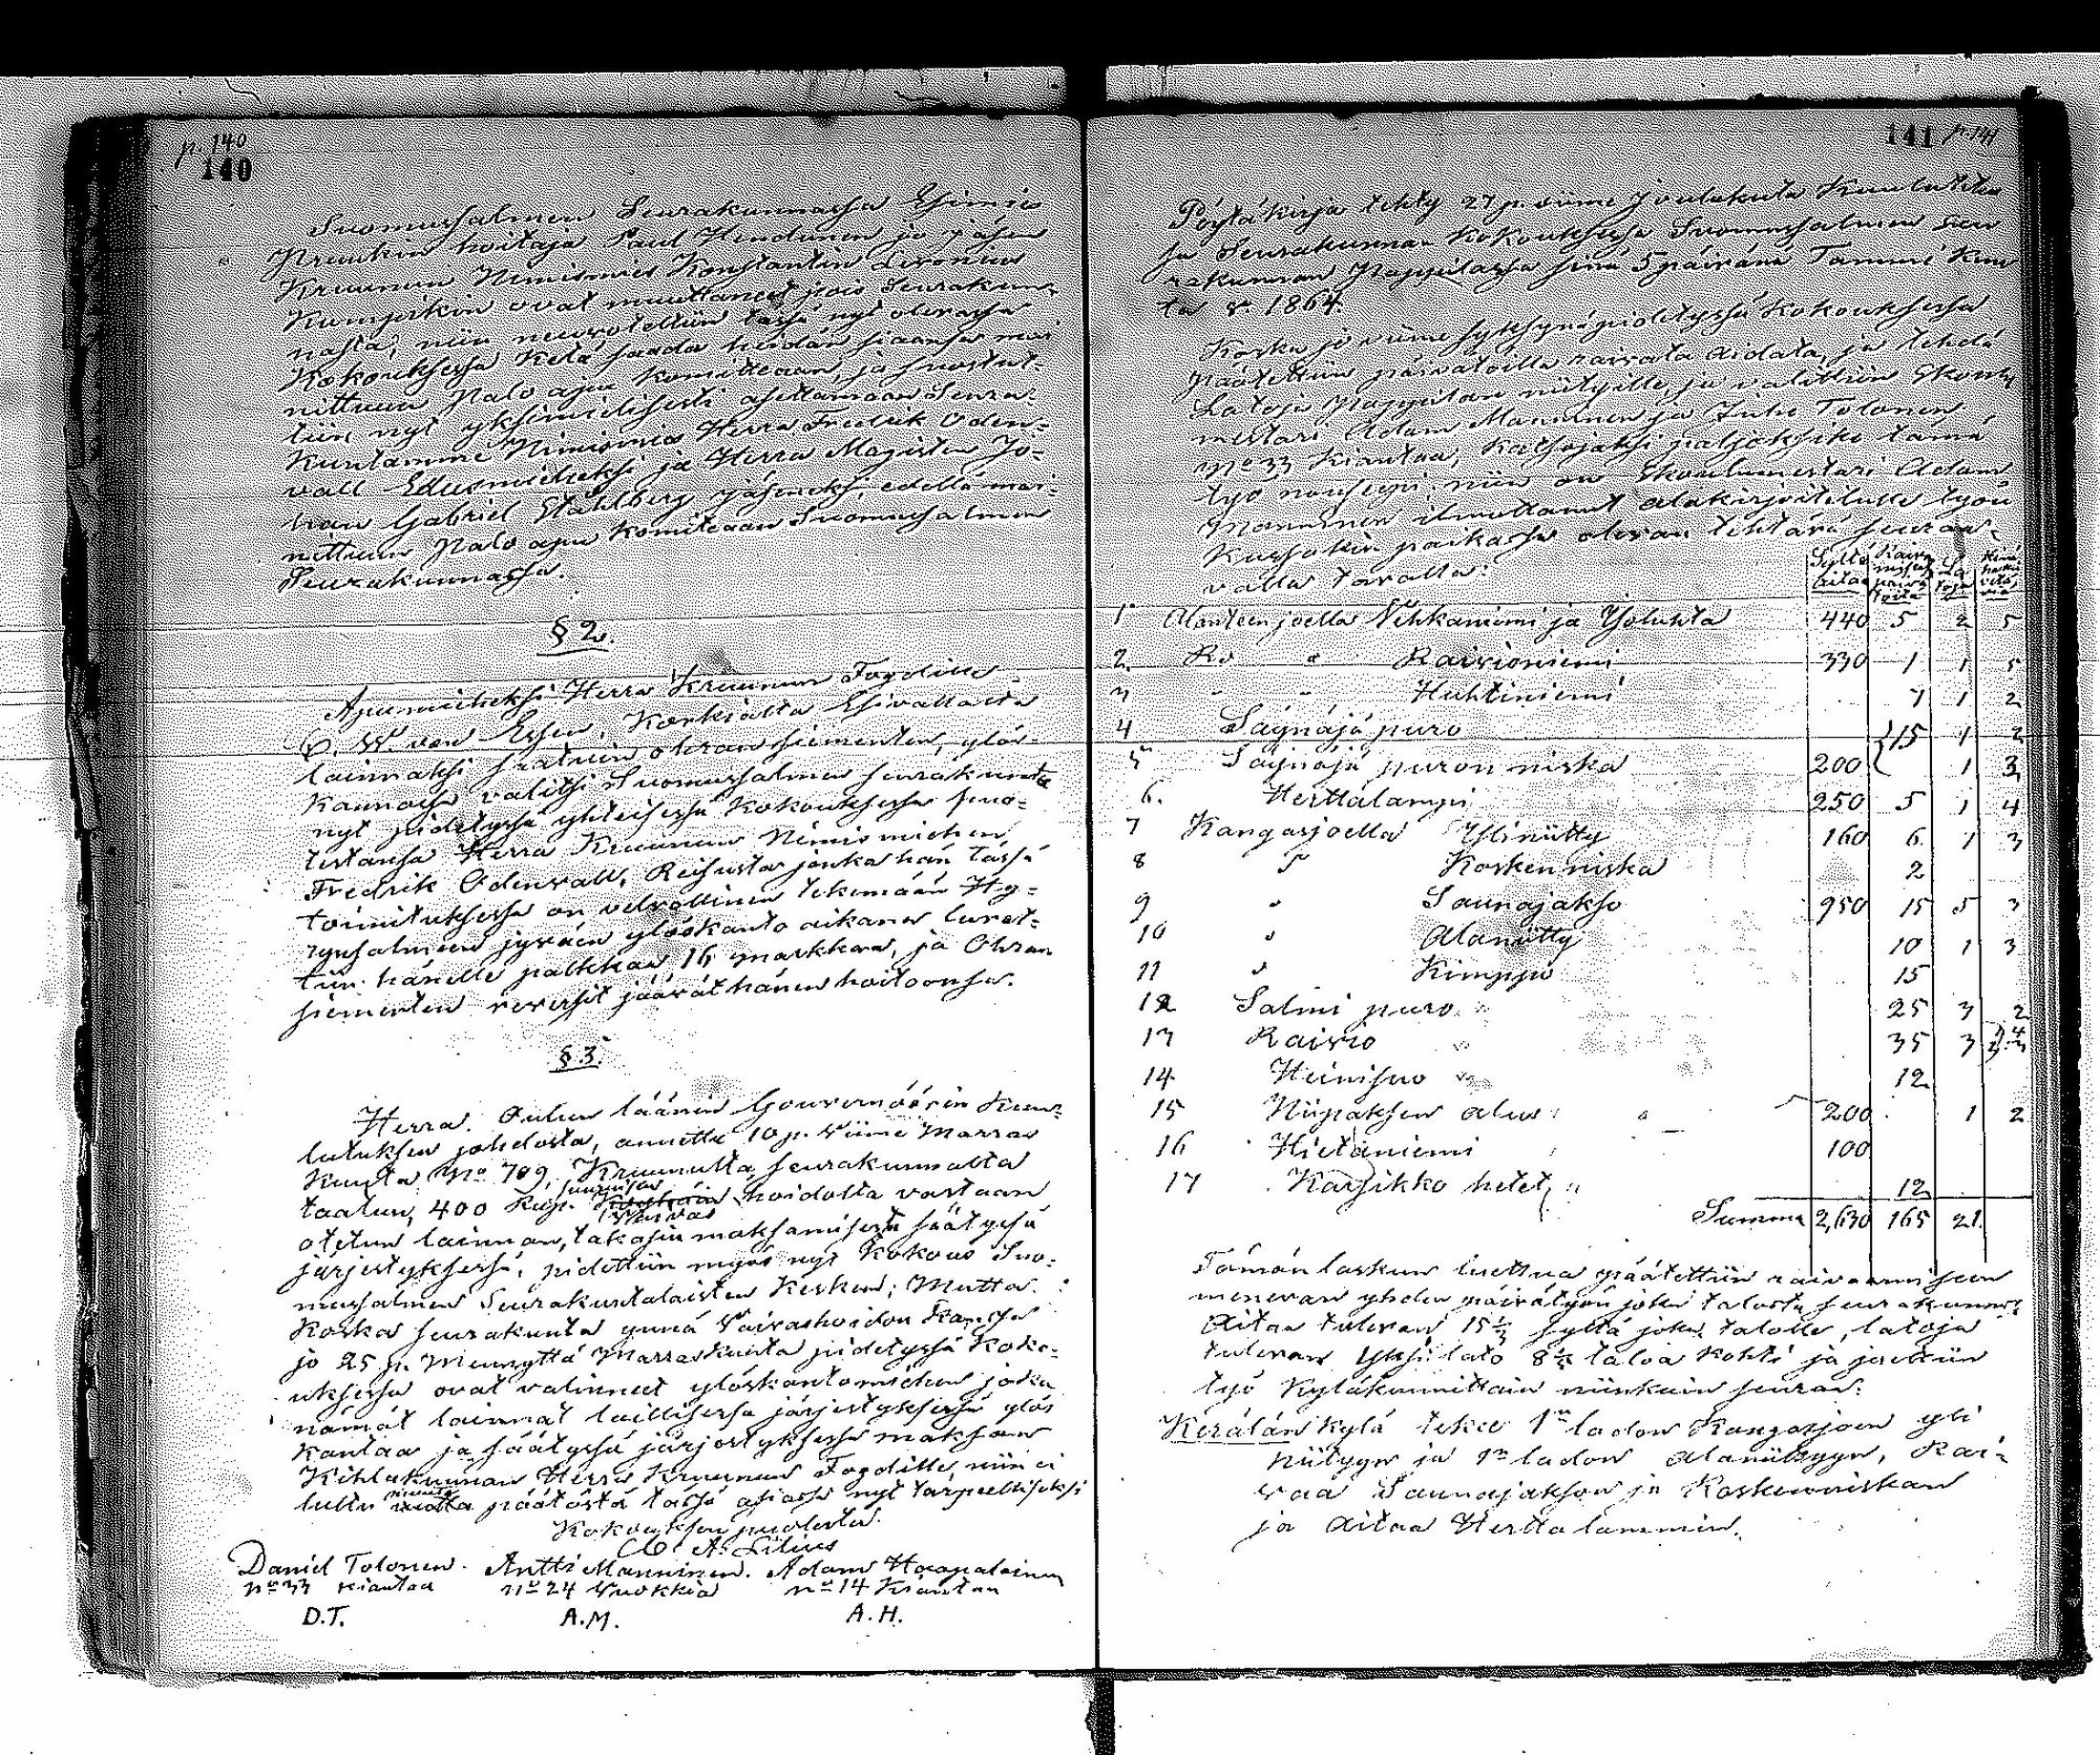 p. 140
140
Suomussalmen Seurakunnassa Esimies
Pruukin hoitaja Paul Hendunen ja jäsen
Kruunun Nimismies Konstantin Levonius
Kumpikin ovat muuttaneet pois Seurakun-
nasta, niin neuvoteltiin tässä nyt olevassa
Kokouksessa Ketä saada heidän siaansa mai-
nittuun Palo apu Komiteaan, ja suostut-
tiin nyt yksimielisesti asettamaan Seura-
kuntamme Nimismies Herra Fredrik Oden-
vall Edusmieheksi ja Herra Magister Jo-
han Gabriel Ståhlberg jäseneksi edellä mai-
nittuun Palo apu Komiteaan Suomussalmen
Seurakunnassa.
§ 2.
Apumieheksi Herra Kruunun Fogdille
C. W. von Essen, Korkialta Esivallalta
lainnaksi saatuin ohran siementen, ylös-
kannossa valitsi Suomussalmen seurakunta
nyt pidetyssä yhteisessä Kokouksessa suos-
tustansa Herra Kruunun Nimismiehen
Fredrik Odenvall, Reisusta jonka hän tässä
toimituksessa on velvollinen tekemään Hy-
rynsalmeen jyväin ylöskanto aikana luvat-
tiin hänelle palkkaa 16 markkaa, ja Ohran
siementen reversit jäävät hänen hoitoonsa.
§ 3.
Herra Oulun läänin Gouvernöörin Kuu-
lutuksen johdosta, annettu 10 p. viime Marras
Kuuta No 709, Kruunulta seurakunnalta
taatun, 400 Rup. hoidolta vastaan
Vaivas
otetun lainnan, takasin maksamisesta säätyssä
järjestyksessä, pidettiin myös nyt Kokous Suo-
mussalmen Seurakuntalaisten Kesken; Mutta
Koska seurakunta ynnä Vaivashoidon Kanssa
jo 25 p. Mennyttä Marraskuuta pidetyssä Koko-
uksessa ovat valinneet ylöskantomiehen joka
nämät lainnat laillisessa järjestyksessä ylös
Kantaa ja säätyssä järjestyksessä maksaa
Kihlakunnan Herra Kruunun Fogdille, niin ei
luttu muuta päätöstä tässä asiassa nyt tarpeelliseksi
Kokouksen puolesta.
C. A. Lilius
Daniel Tolonen. Antti Manninen. Adam Haapalainen
No 33 Kiantaa No 24 Vuokkia No 14 Kiantaa
D.T. A.M. A.H.
141 p. 141
Pöytäkirja tehty 27 p. viime Joulukuuta Kuulutetu
sa Seurakunnan Kokouksessa Suomussalmen seu
rakunnan Pappilassa sinä 5 päivänä Tammi Kuu
ta v. 1864.
Koska jo viime syksynä pidetyssä Kokouksessa
päätettiin päivätöillä raivata aidata, ja tehdä
Latoja Pappilan niityille, ja valittiin Ekonly
mestari Adam Manninen ja Juho Tolonen
No 33 Kiantaa, Katsojaksi paljoksiko tämä
työ nousepi; niin on Ekonlumestari Adam
Manninen ilmottanut alakirjoitetuste työn
Kussakin paikassa olevan tehtävä seuraa-
valla tavalla:
Syltä aitaa Raivamisen päivä töitä La toja
1 Alanteen joella Vihkaniemi ja Isoluhta 440 5 2 5
2. Ro " Raivioniemi 330 1 1 5
3 " " Huhtiniemi 7 1 2
4 Säynäjä puro 15 1 2
5 Säynäjä puron niska 200 1 3
6. Herttalampi 250 5 1 4
7 Kangasjoella Yliniitty 160 6. 1 3
8 " Koskenniska 2
9 " Saunajakso 950 15 5 3
10 " Alaniitty 10 1 3
11 " Kimppi 15
12 Salmi puro 25 3 2
13 Raivio 35 3
14 Heinisuo 12
15 Niipaksen alus 200 1 2
16 Hietaniemi 100
17 Karsikko hetet 12
Summa 2,630 165 21.
Tämän laskun luettua päätettiin raivaamiseen
menevan yhden päivätyön joka talosta seurakunnas
Aitaa tulevan 15 1/3 syltä joka talolle, latoja
tulevan Yksi lato 8 1/2 taloa Kohti ja jaettiin
työ Kyläkunnittain niinkuin seuraa:
Kerälän kylä tekee 1n ladon Kangasjoen yli
niityyn ja 1n ladon Alaniittyyn, Rai-
vaa Saunajakson ja Koskenniskan
ja Aitaa Herttalammin.